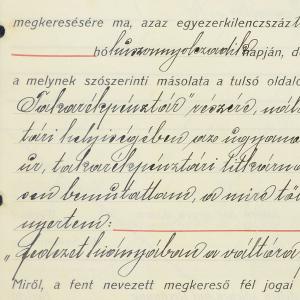 megkeresésére ma, azaz egyezerkilenczszáz
hó huszonnyolczadik napján, d
a melynek szószerinti másolata a tulsó oldalo
Takarékpénztár" részére, nál
tári helyiségében az ugyana
úr, takarékpénztári titkárna
sen bemutattam, a mire tá
nyertem:
„fedezet hiányában a váltóra
Miről, a fent nevezett megkereső fél jogai